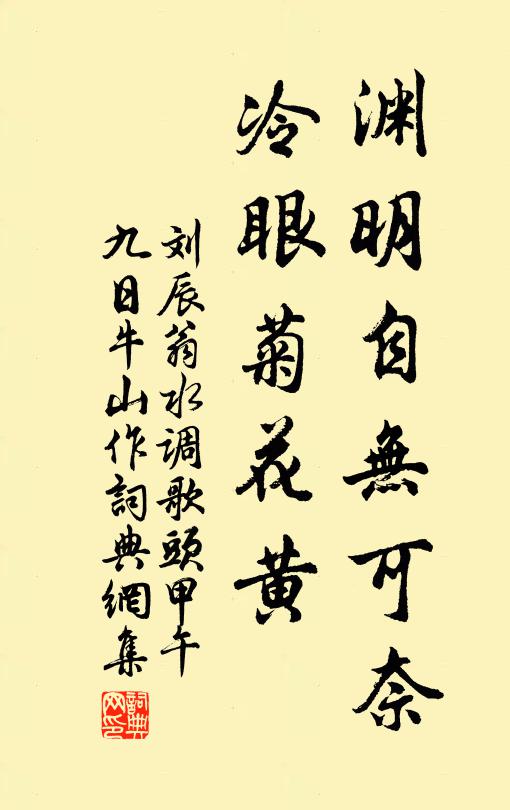 渊明自無可奈
冷眼菊花黄
刘辰翁水调歌頭甲午
九日牛山作詞典網集
詞典网印